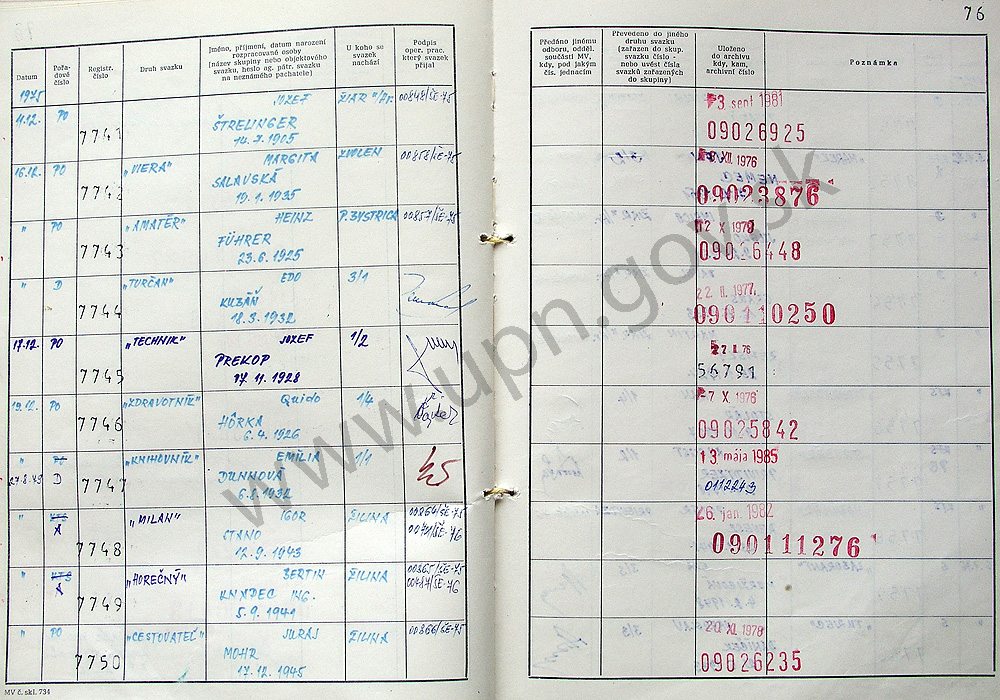 76
Datum
Pořa-
dové
číslo
Registr.
číslo
Druh svazku
Jméno, příjmení, datum narození
rozpracované osoby
(název skupiny nebo objektového
svazku, heslo ag. pátr. svazku
na neznámého pachatele)
U koho se
svazek
nachází
Podpis
oper. prac.
který svazek
přijal
Předáno jinému
odboru, odděl.
součásti MV,
kdy, pod jakým
čís. jednacím
Převedeno do jiného
druhu svazku
(zařazen do skup.
svazku číslo -
nebo uvést čísla
svazků zařazených
do skupiny)
Uloženo
do archivu
kdy, kam,
archivní číslo
Poznámka
1975
11.12. PO 7741 JOZEF
ŠTRELINGER
14.7.1905
00848/ŠE-75
3 sept 1981
09026925
16.12. PO 7742 „VIERA" MARGITA ZVOLEN 00858/ŠE-75
SALAVSKÁ
19.1.1935
XII 1976
09023876
" PO 7743 „AMATÉR" HEINZ P. BYSTRICA 00857/ŠE-75
FÜHRER
23.6.1925
09026448
" D 7744 „TURČAN" EDO 3/1
KUBÁŇ
18.3.1932
22 II. 1977
090110250
17.12. PO 7745 „TECHNIK" JOZEF 1/2
PREKOP
17.11.1928
56791
19.12. PO 7746 „ZDRAVOTNÍK" Quido 1/4
HÔRKA
6.4.1926
-7 X. 1976
09025842
" PO 7747 „KNIHOVNÍK" EMÍLIA 1/1
D
DUNNOVÁ
13 mája 1985
0112243
" A 7748 „MILAN" IGOR ŽILINA 00864/ŠE-75
STANO
12.9.1943
26. jan. 1982
090111276
" A 7749 „HOREČNÝ" BERTIN ŽILINA 00865/ŠE-75
00487/ŠE-76
5.9.1941
" PO 7750 „CESTOVATEĽ" JURAJ ŽILINA 00866/ŠE-75
MOHR
17.12.1945
20 XI. 1978
09026235
MV č. skl. 734
www.upn.gov.sk